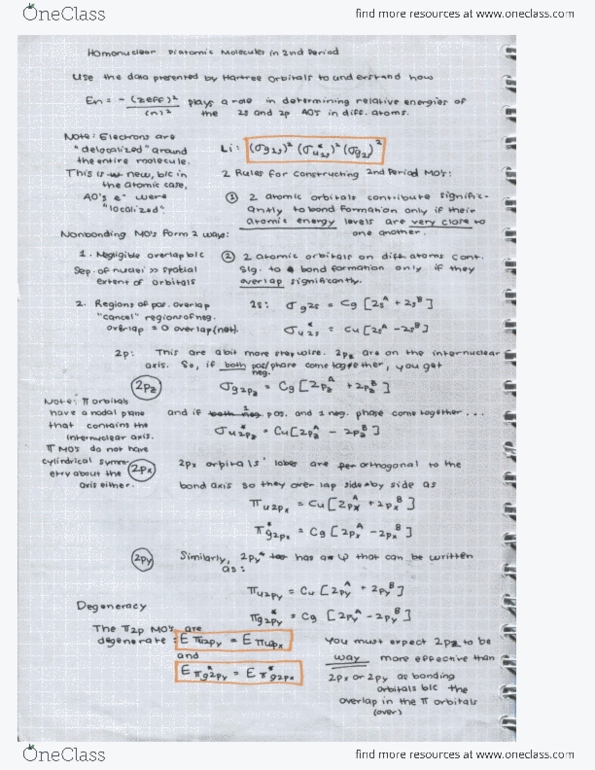 OneClass
find more resources at www.oneclass.com
Homonuclear Diatomic Molecules in 2nd Period
Use the data presented by Hartree Orbitals to understand how
En = -(Zeff)²/(n)² plays a role in determining relative energies of
the 2s and 2p AO's in diff. atoms.
Note: Electrons are
"delocalized" around
the entire molecule.
This is new, b/c in
the atomic case,
AO's e⁻ were
"localized".
Li: (σg2s)² (σ*u2s)² (σg2)²
2 Rules for constructing 2nd Period MO's:
① 2 atomic orbitals contribute signific-
antly to bond formation only if their
atomic energy levels are very close to
one another.
Nonbonding MO's form 2 ways:
1. Negligible overlap b/c
Sep. of nuclei >> spatial
extent of orbitals
② 2 atomic orbitals on diff. atoms cont.
sig. to bond formation only if they
overlap significantly.
2. Regions of pos. overlap
"cancel" regions of neg.
overlap = 0 overlap (net).
2s: σg2s = Cg [2sᴬ + 2sᴮ]
σ*u2s = Cu [2sᴬ - 2sᴮ]
2p: This are a bit more  2pz are on the internuclear
axis. So, if both pos/neg. phase come together, you get
2pz
σg2pz = Cg [2pzᴬ + 2pzᴮ]
Note: π orbitals
have a nodal plane
that contains the
internuclear axis.
π MO's do not have
cylindrical symm-
etry about the
axis either.
and if both neg 1 pos. and 1 neg. phase come together...
σ*u2pz = Cu [2pzᴬ - 2pzᴮ]
2px
2px orbitals' lobes are orthogonal to the
bond axis so they overlap side by side as
πu2px = Cu [2pxᴬ + 2pxᴮ]
π*g2px = Cg [2pxᴬ - 2pxᴮ]
2py
Similarly, 2py has a ψ that can be written
as:
πu2py = Cu [2pyᴬ + 2pyᴮ]
π*g2py = Cg [2pyᴬ - 2pyᴮ]
Degeneracy
The π2p MO's are
degenerate: E πu2py = E πu2px
and
E π*g2py = E π*g2px
You must expect 2pz to be
way more effective than
2px or 2py as bonding
orbitals b/c the
overlap in the π orbitals
(over)
OneClass
find more resources at www.oneclass.com